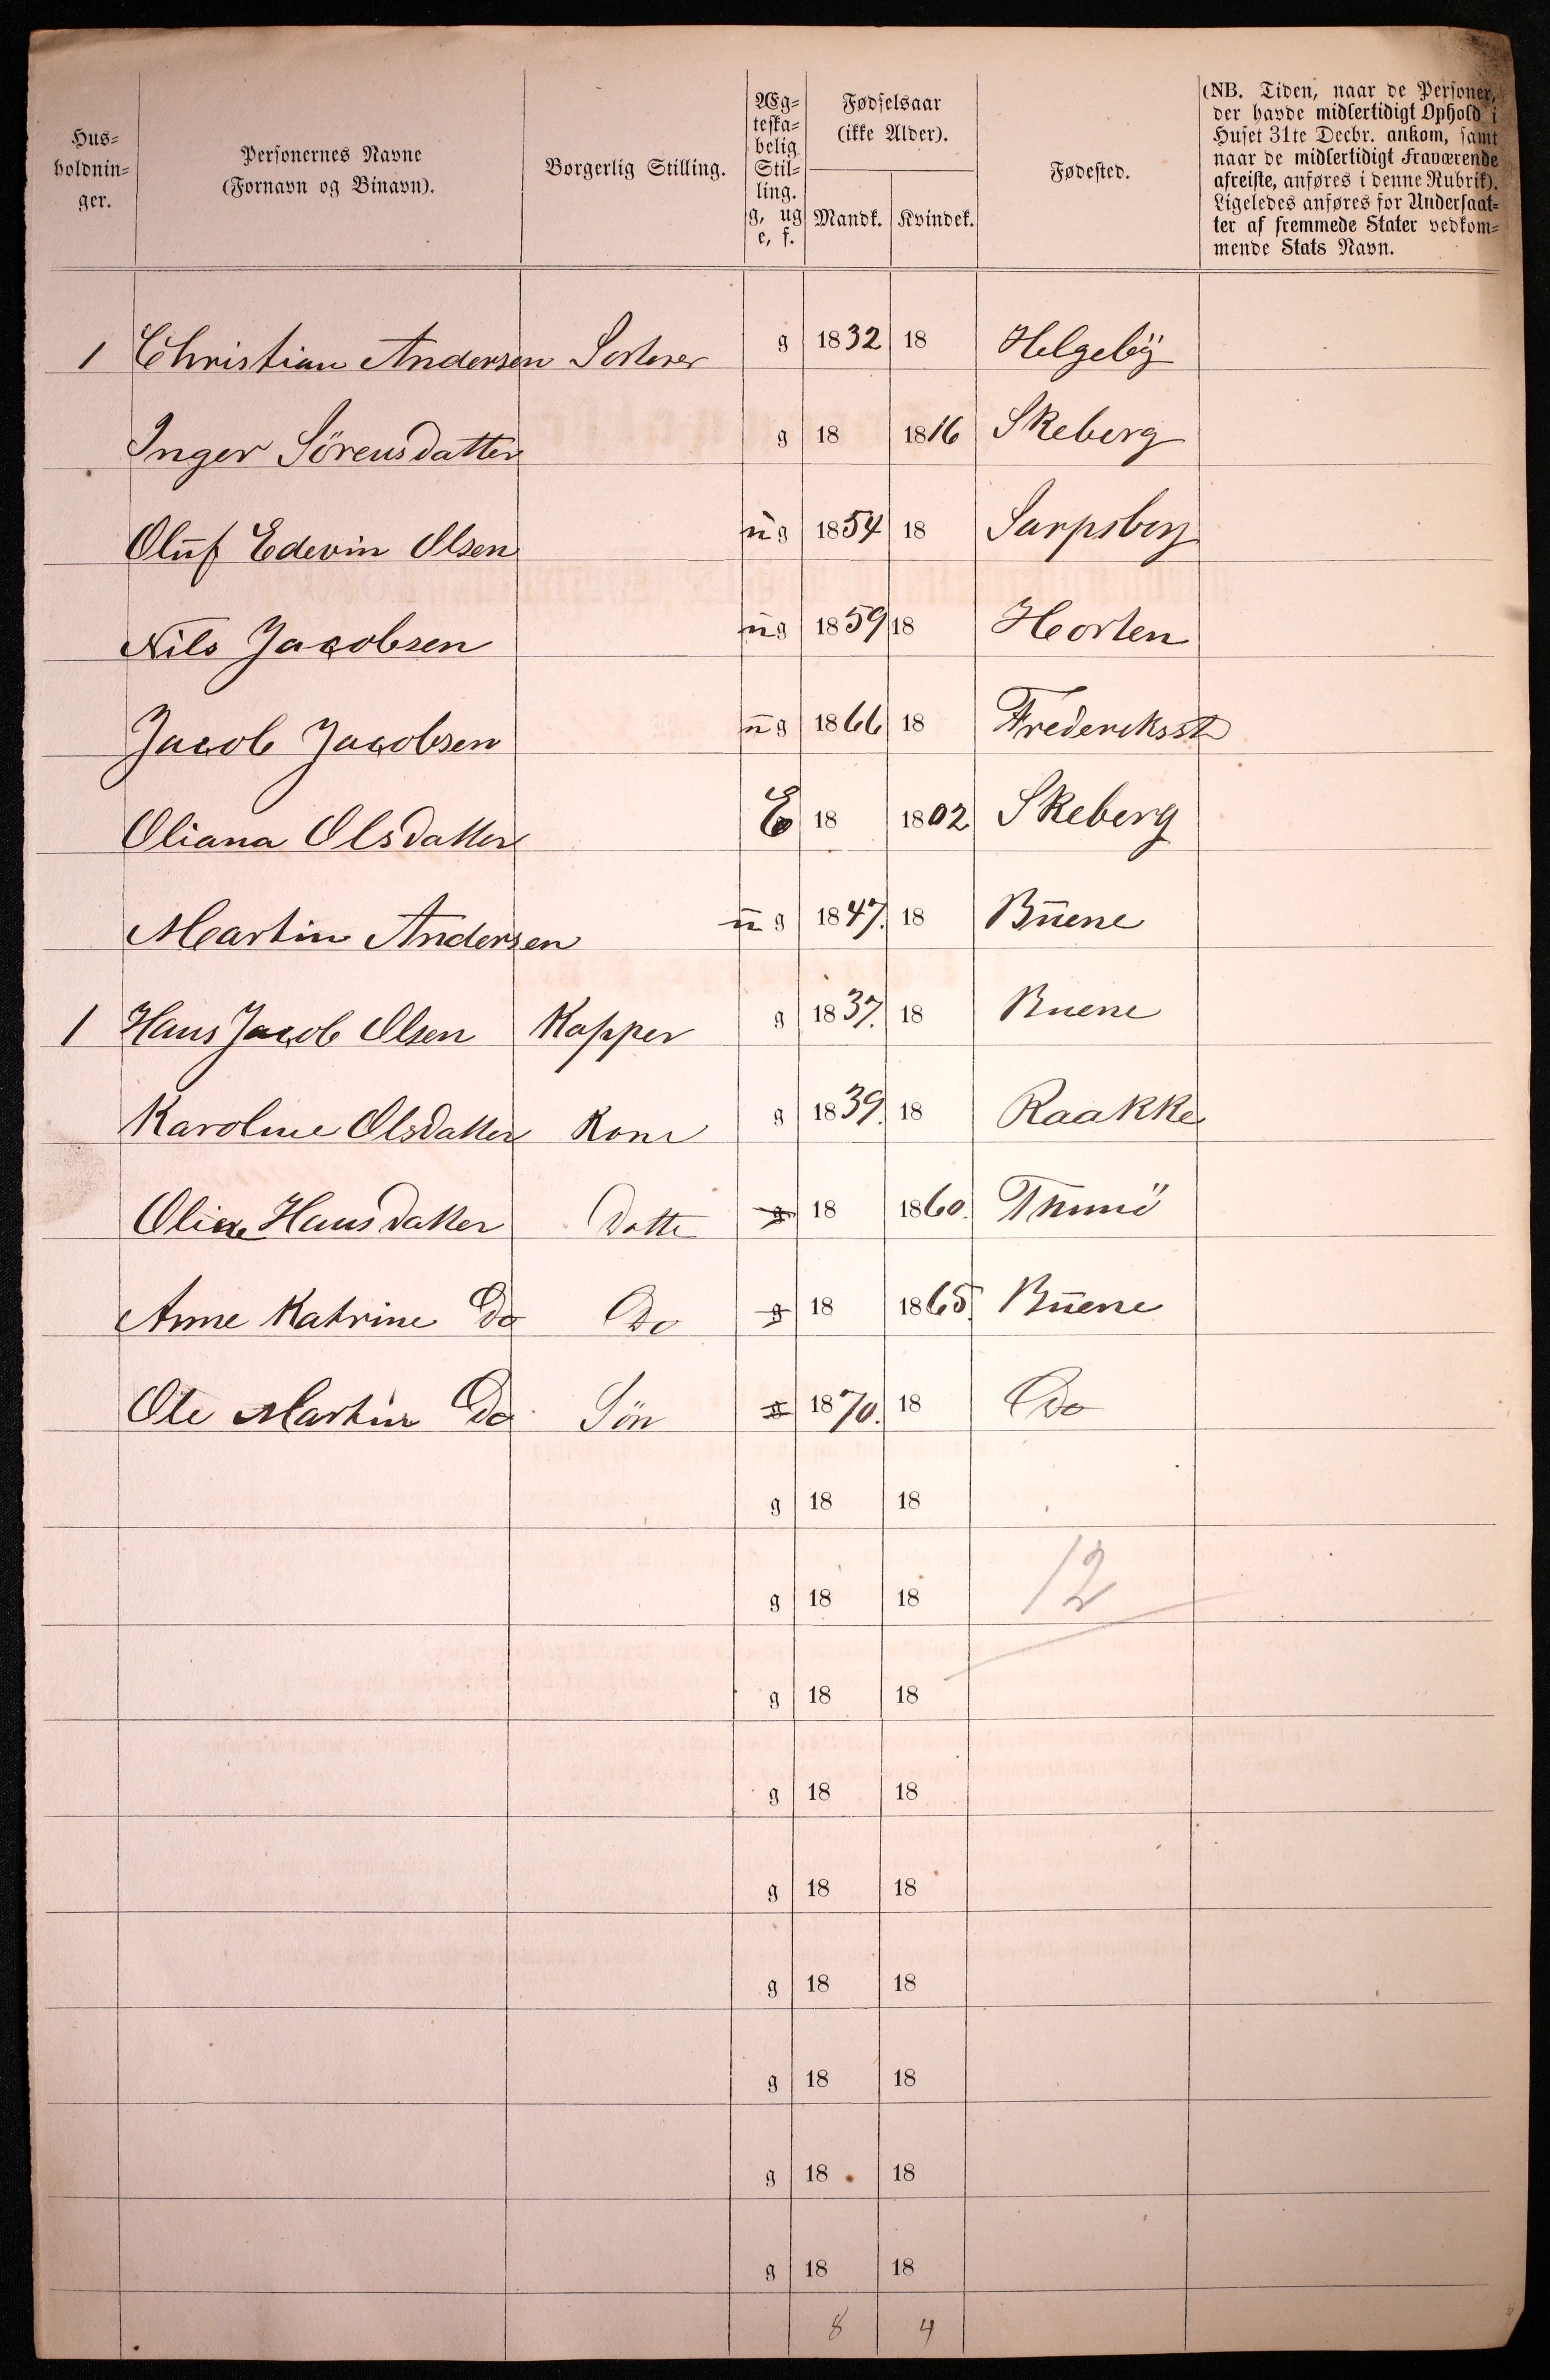 Hus-
holdnin-
ger.
Personernes Navne
(Fornavn og Binavn).
Borgerlig Stilling.
Æg-
teska-
belig
Stil-
ling.
g, ug
e, f.
Fødselsaar
(ikke Alder).
Mandk. Kvindek.
Fødested.
(NB. Tiden, naar de Personer,
der havde midlertidigt Ophold i
Huset 31te Decbr. ankom, samt
naar de midlertidigt Fraværende
afreiste, anføres i denne Rubrik).
Ligeledes anføres for Undersaat-
ter af fremmede Stater vedkom-
mende Stats Navn.
1 Christian Andersen Sorterer g 1832 18 Helgebÿ
Inger Sörensdatter g 18 1816 Skeberg
Oluf Edevin Olsen ug 1854 18 Sarpsborg
Nils Jacobsen ug 1859 18 Horten
Jacob Jacobsen ug 1866 18 Frederiksst
Oliana Olsdatter E 18 1802 Skeberg
Martin Andersen ug 1847. 18 Buene
1 Hans Jacob Olsen Kapper g 1837. 18 Buene
Karoline Olsdatter Kone g 1839. 18 Raakke
Oline Hansdatter Datte g 18 1860. Thunö
Anne Katrine Do Do g 18 1865. Buene
Ole Martin Do Sön g 1870. 18 Do
g 18 18
g 18 18 12
g 18 18
g 18 18
g 18 18
g 18 18
g 18 18
g 18 18
g 18 18
8 4